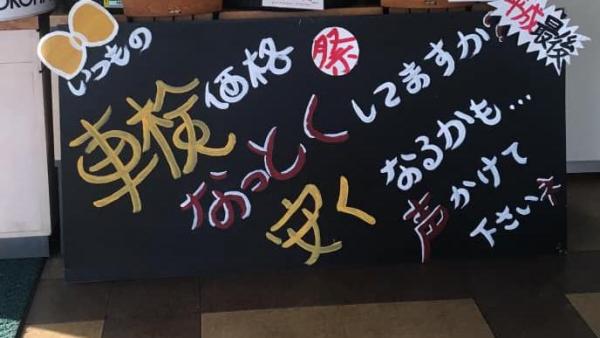 いつもの
車検価格
祭
なっとくしてますか
安く
なるかも…
声かけて
下さい
平成最後